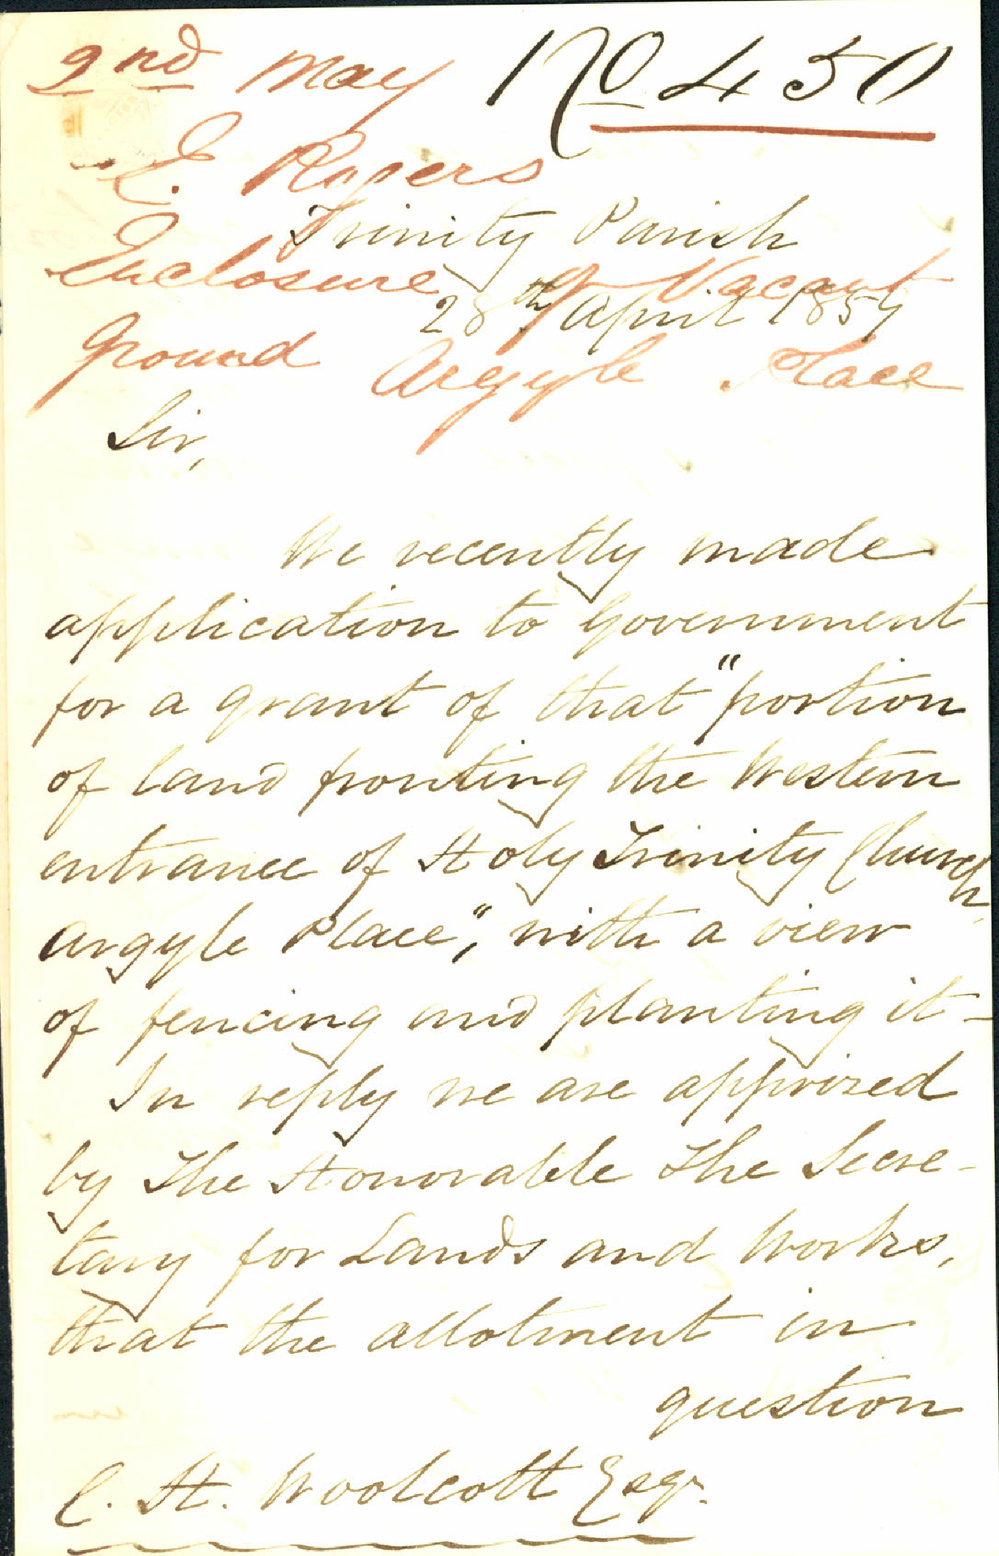 2nd May No 450
E. Rogers
Trinity Parish
Enclosure of Vacant
28th April 1857
Ground Argyle Place
Sir,
We recently made
application to Government
for a grant of that "portion
of land fronting the Western
entrance of Holy Trinity Church,
Argyle Place", with a view
of fencing and planting it -
In reply we are apprized
by The Honorable The Secre-
tary for Lands and Works,
that the allotment in
question
C. H. Woolcott Esqr.